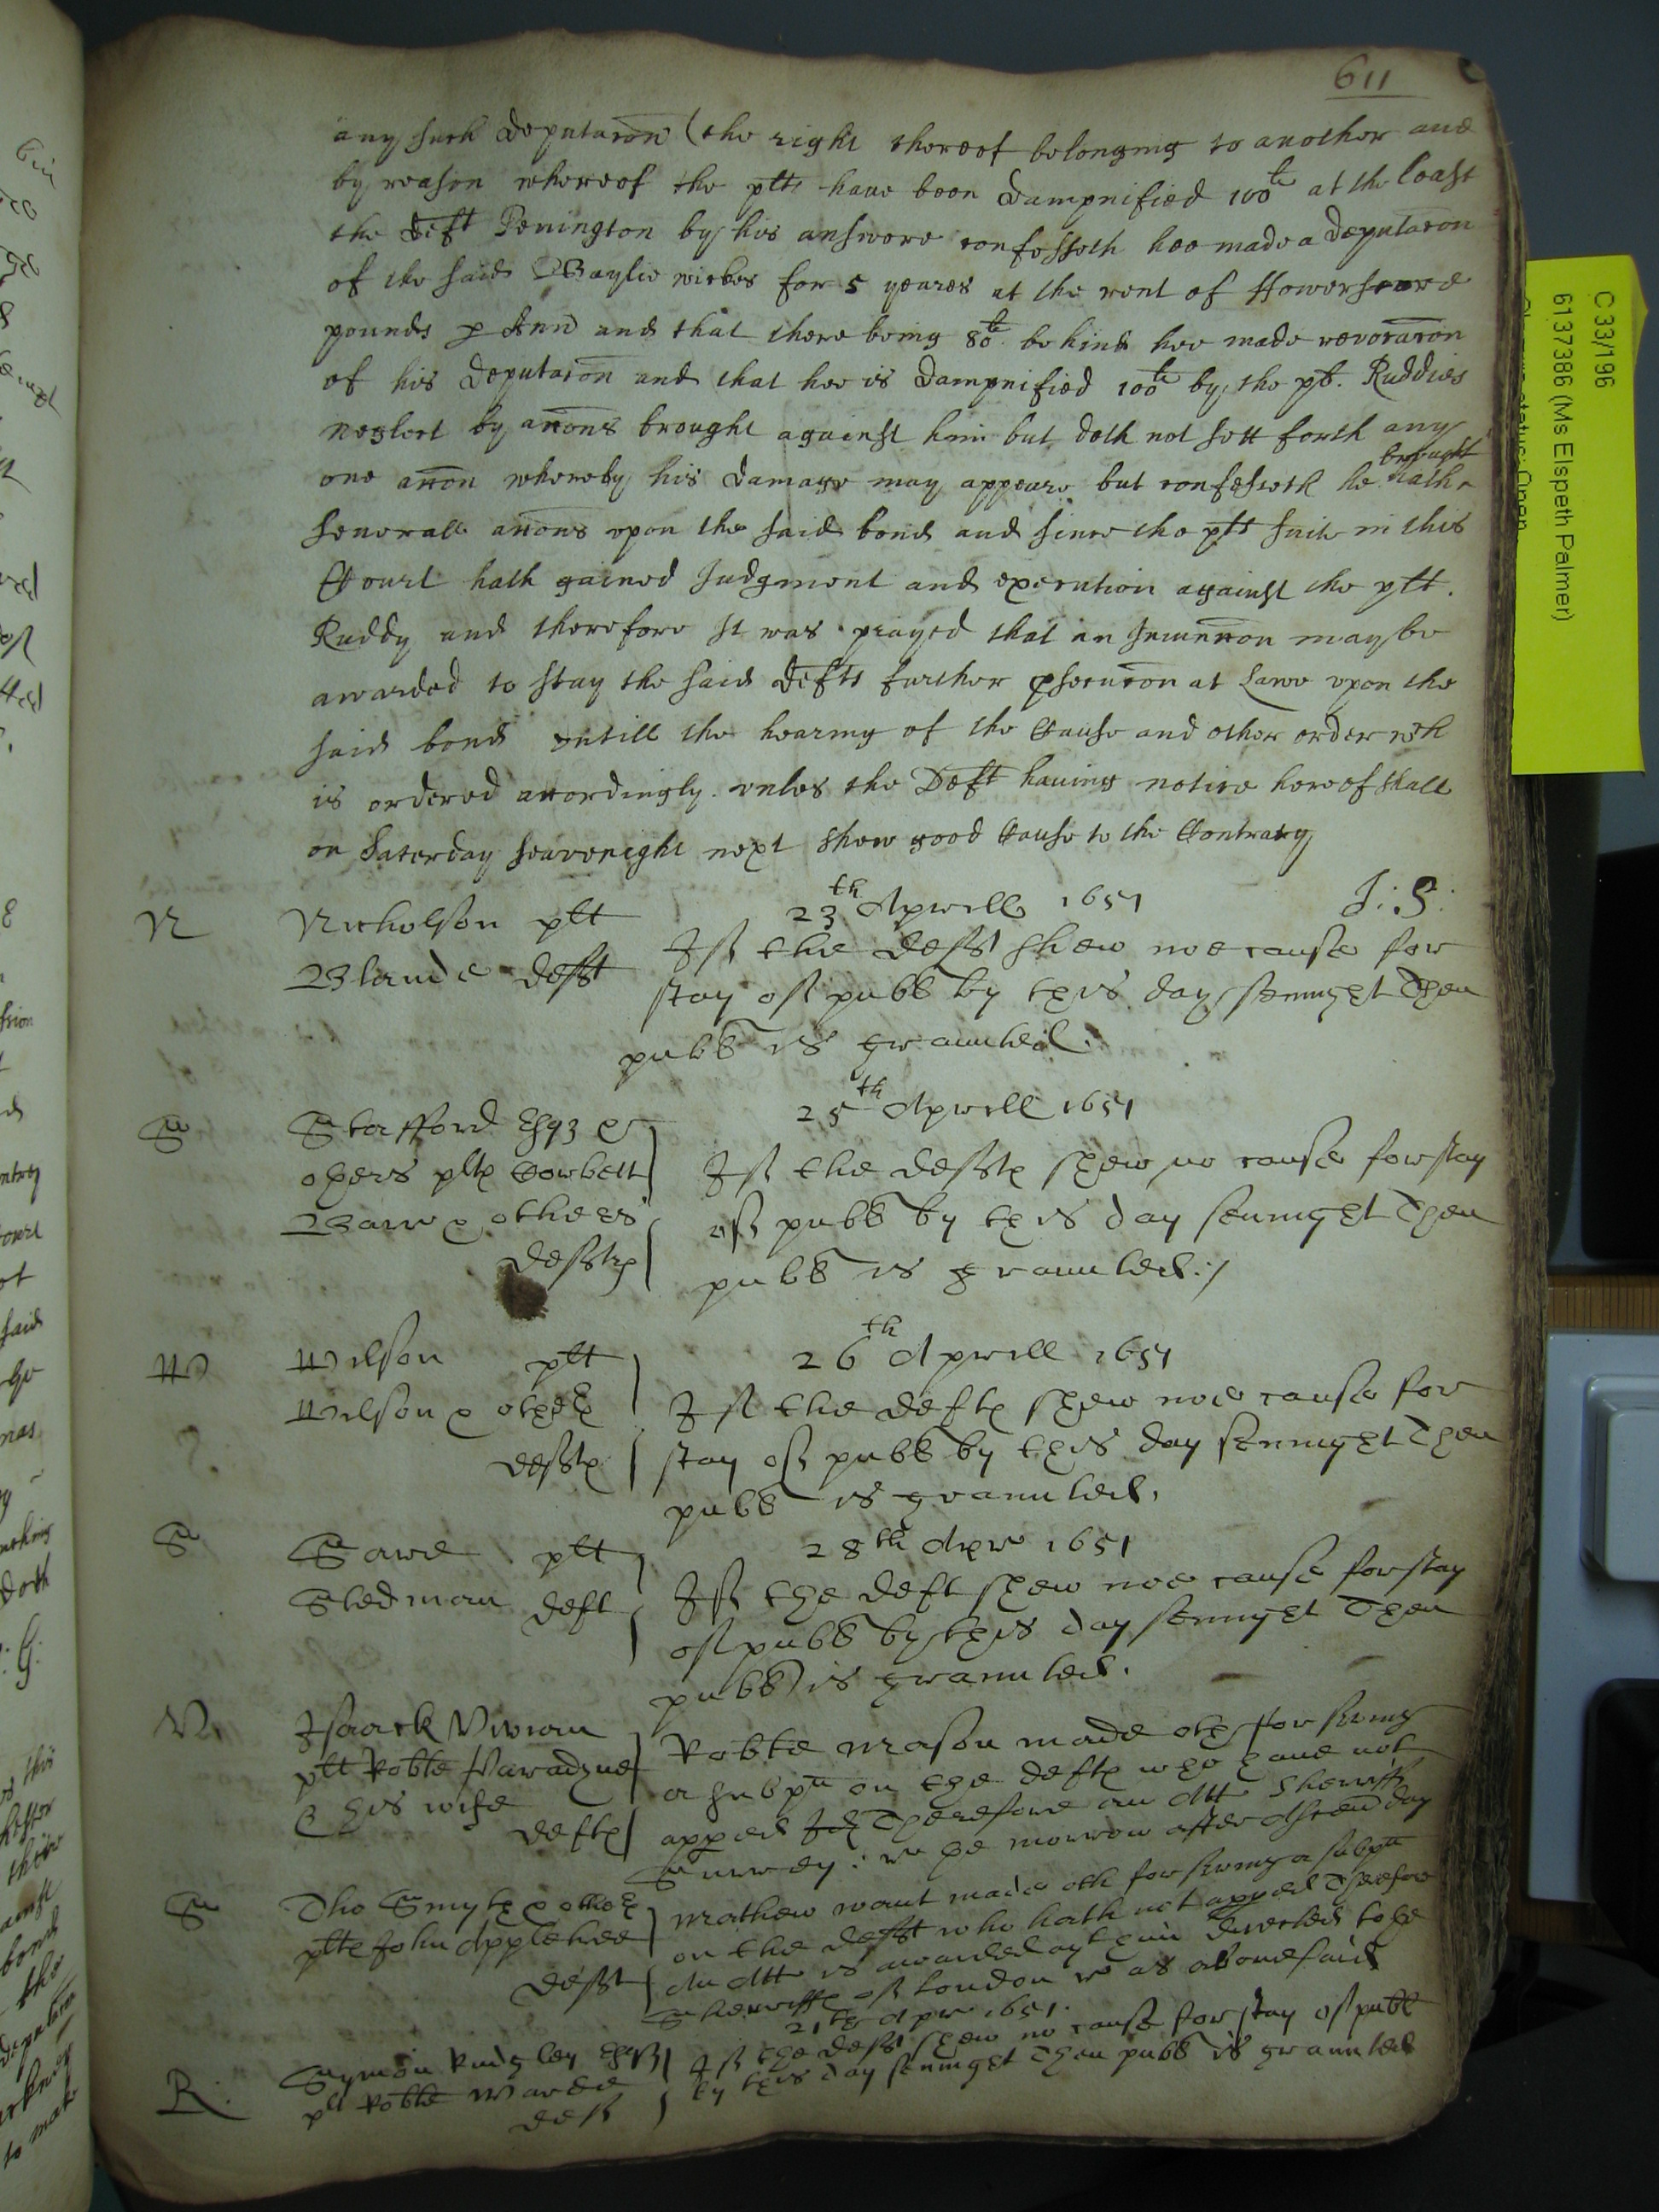 611
any such Deputacōn (the right thereof belonging to another and
by reason whereof the plts haue been Dampnified 100li at the least
the Deft Penington by his answere confesseth hee made a Deputacōn
of the said Baylie wickes for 5 yeares at the rent of ffowerscore
pounds p Ann and that there being 80li behind hee made revocacōn
of his Deputacōn and that hee is Dampnified 100li by the plt. Ruddies
neglect by accōns brought against him but doth not sett forth any
one accōn whereby his Damage may appeare but confesseth he hath brought
seuerall accōns vpon the said bond and since the plts suite in this
Court hath gained Judgment and execution against the plt.
Ruddy and therefore It was prayed that an Iniunccōn may be
awarded to stay the said Defts further psecucōn at Lawe vpon the
said bond vntill the hearing of the Cause and other order wch
is ordered accordingly. vnles the Deft hauing notice hereof shall
on Saterday seavenight next shew good Cause to the Contrary
J: S:
N Nicholson plt
Blande defft
23th Aprill 1651
If the defft shew noe cause for
stay of publ by this day sennight Then
publ is graunted.
S Stafford Esqz &
others plts Corbett
Barr & others
deffts
25th Aprill 1651
If the deffts shew no cause for stay
of publ by this day sennight Then
publ is graunted:/
W Wilson plt
Wilson & others
deffts
26th Aprill 1651
If the defts shew noe cause for
stay of publ by this day sennight Then
publ is graunted.
S Sare plt
Stedman deft
28th Apr 1651
If the deft shew noe cause for stay
of publ by this day sennight Then
publ is graunted.
V Isaack Vivian
plt Robte Paradyne
& his wife
defts
Robte Mason made oth for servinge
a subpa on the defts who haue not
appeared Therefore an Att Sherriff
Surrey: re the morrow after Ascencon day
S Tho Smyth & others
plts John Appletree
defft
Mathew want made oth for serving a subpa
on the defft who hath not appeared Therefore
An Att is awarded agt him directed to the
Sherriffs of London re as abouesaid
R. Symon Rudgley Esqz
plt Robte Warde
deft
21th Apr 1651.
If the defft shew no cause for stay of publ
by this day sennight Then publ is graunted
C 33/196
6137386 (Ms Elspeth Palmer)